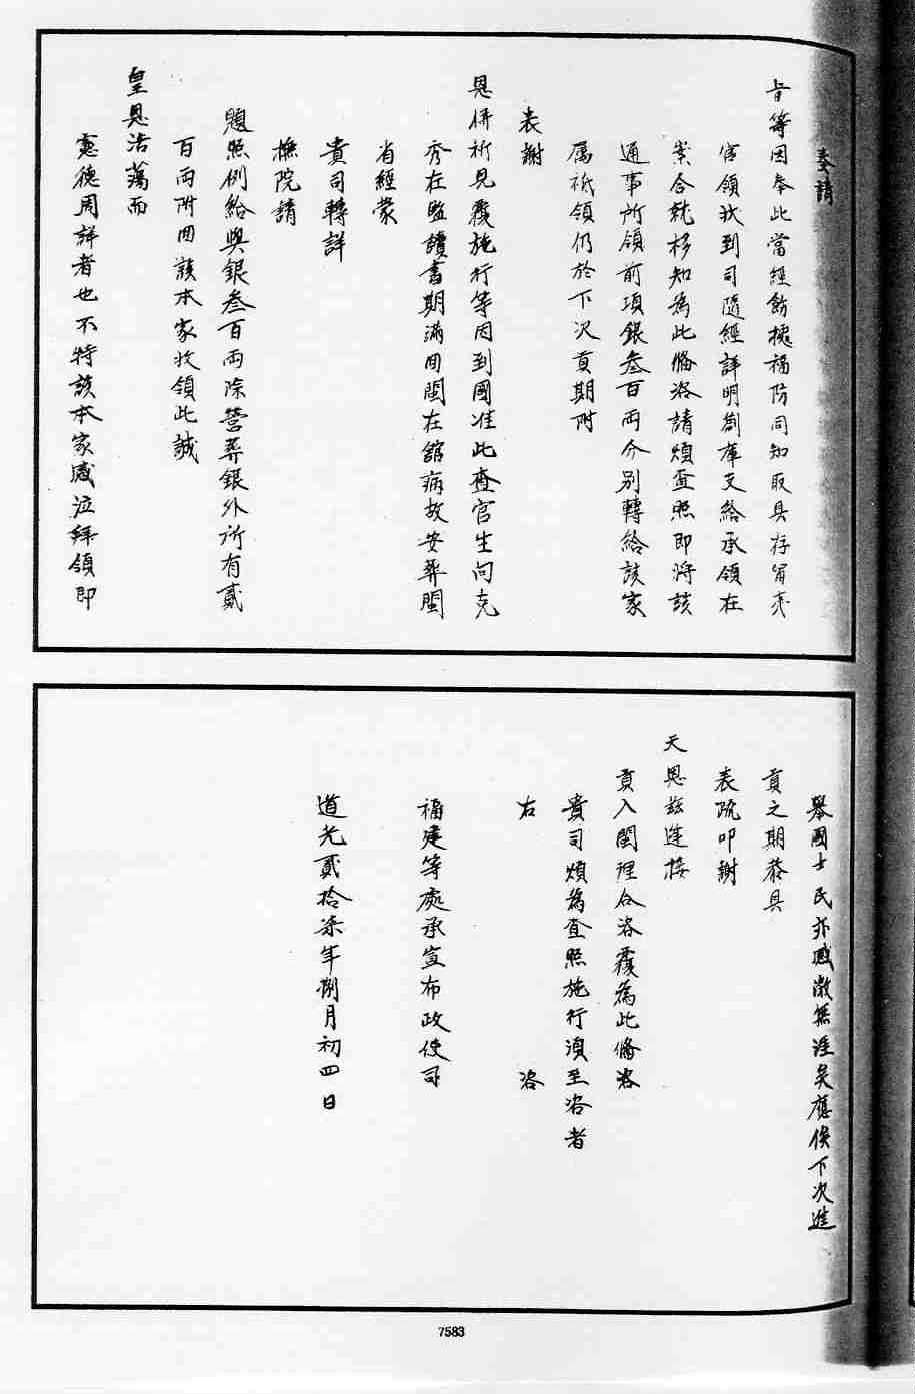 奏請
旨等因奉此當經飭據福防同知取具存留充
官領狀到司隨經詳明劄庫支給承領在
案合就移知為此備洛請煩查照即將該
通事所領前項銀叁百兩分別轉給該家
属祗領仍於下次貢期附
表謝
恩併祈見覆施行等因到國准此查官生向克
秀在監讀書期滿回閩在舘病故安葬閩
省經蒙
貴司轉詳
撫院請
題照例給與銀叁百兩除營葬銀外所有貳
百兩附回該本家收領此誠
皇恩浩蕩而
憲德周詳者也不特該本家感泣拜領即
舉國士民亦感激無涯矣應俟下次進
貢之期恭具
表疏叩謝
天恩茲逢接
貢入閩理合咨覆為此備咨
貴司煩為查照施行須至咨者
右 咨
福建等處承宣布政使司
道光貳拾柒年捌月初四日
7583